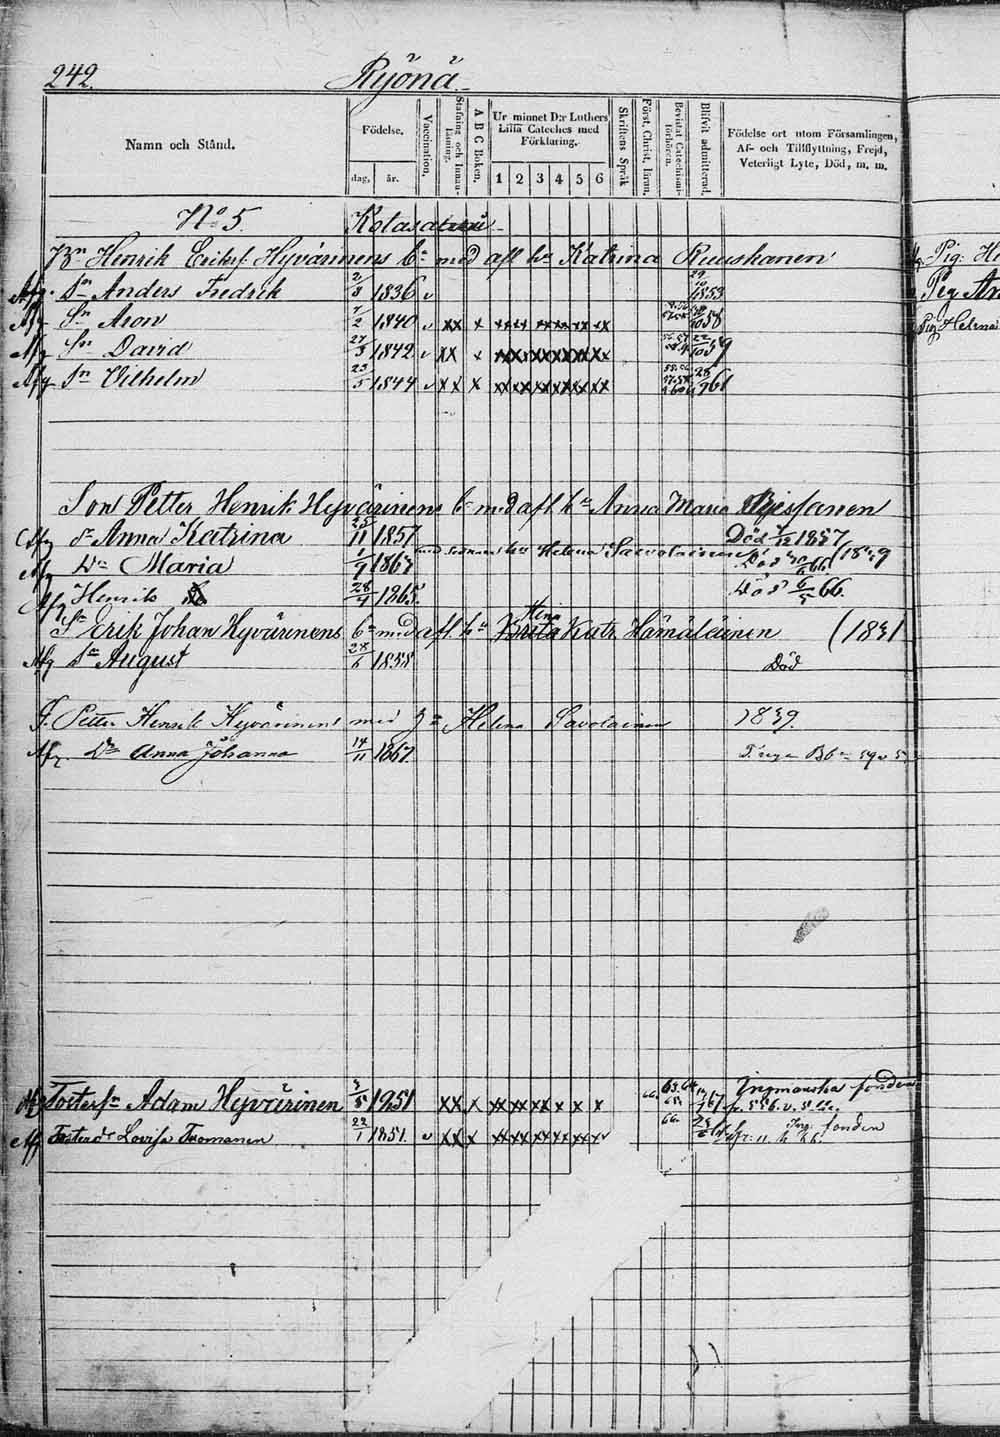 242. Ryönä
Namn och Stånd. Födelse. dag. år. Vaccination. Stafning och Innanläsning. A B C Boken. Ur minnet D:r Luthers Lilla Cateches med Förklaring. 1 2 3 4 5 6 Skriftens Språk Först. Christ. läran. Bevistat Catechismiförhören. Blifvit admitterad. Födelse ort utom Församlingen, Af- och Tillflyttning, Frejd, Veterligt Lyte, Död, m. m.
No 5. Kotasa
Bn Henrik Eriksf. Hyvärinens bn med afl hu Katrina Ruuskanen
Afg. Sn Anders Fredrik 2/8 1836 v 29/10 1853
Afg Sn Aron 7/2 1840 v xx x xxxx xxxx xx xx 58
Afg Sn David 27/3 1842 v xx x xxxxxxxxxxxx 22/10 59
Afg Sn Vilhelm 23/5 1844 v xx x xxxxxxxxxxxx 28/9 61
Son Petter Henrik Hyvärinens bn med afl hu Anna Maria
Afg dr Anna Katrina 25/11 1857 Död 1857
med sednare hu Helena Savolainen (1839
Afg Dr Maria 1/9 1863 Död 66
Afg Henrik 28/4 1865. Död 6/5 66.
Sn Erik Johan Hyvärinens bn med afl hu Stina Brita Katr. Hämäläinen (1831
Afg Sn August 28/6 1858 Död
S. Petter Henrik Hyvärinens med Helena Savolainen 1839.
Afg. Dr Anna Johanna 14/11 1867.
Afg Fostersn Adam Hyvärinen 3/5 1851 xx x xx xx xx x x x 66. 63. 64 65. 67 Ingmanska fonden
Aff Fosterdr Lovisa Tuomanen 22/1 1851. v xx x xx xx xx xx xx 66. fonden
Pig: He
Pig An
Pig Helena